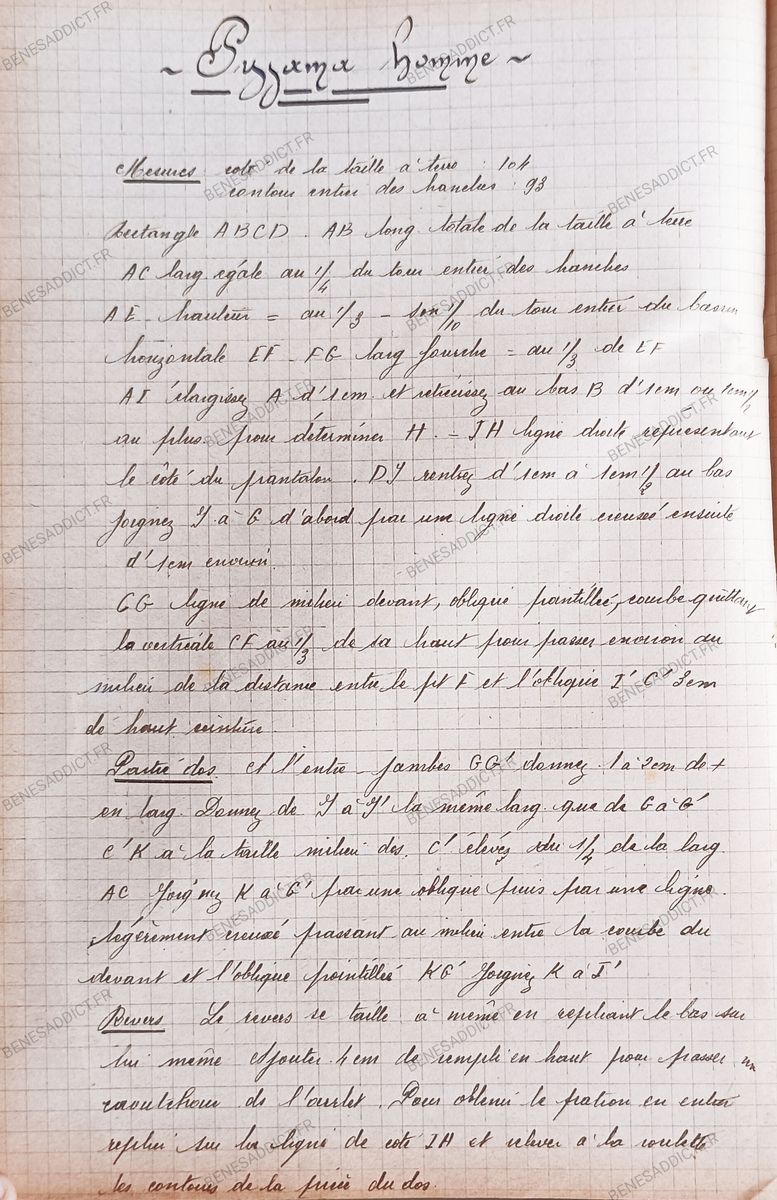 ~ Pyjama homme ~
Mesures coté de la taille à terre : 104
contour entier des hanches : 93
Rectangle ABCD. AB long totale de la taille à terre
AC larg égale au 1/4 du tour entier des hanches
AE hauteur = au 1/3 - son 1/10 du tour entier du bassin
horizontale EF - FG larg fourche = au 1/3 de EF
AI élargissez A d'1cm et rétrécissez au bas B d'1cm ou 1cm 1/2
au plus pour déterminer H. - IH ligne droite représentant
le côté du pantalon. DJ rentrez d'1cm à 1cm 1/2 au bas
Joignez J à G d'abord par une ligne droite creusée ensuite
d'1cm environ.
CG ligne de milieu devant, oblique pointillée, courbe quittant
la verticale CF au 1/3 de sa haut pour passer environ au
milieu de la distance entre le pt F et l'oblique I' C' 3cm
de haut ceinture.
Partie dos et l'entre-jambes GG' donnez 1 à 2cm de +
en larg. Donnez de J à J' la même larg. que de G à G'
C'K à la taille milieu dos. C' élevez du 1/4 de la larg.
AC Joignez K à G' par une oblique puis par une ligne
légèrement creusée passant au milieu entre la courbe du
devant et l'oblique pointillée KG' Joignez K à I'
Revers Le revers se taille à même en repliant le bas sur
lui même Ajouter 4cm de rempli en haut pour passer un
caoutchouc de l'ourlet. Pour obtenir le patron en entier
replier sur la ligne de coté IH et relever à la roulette
les contours de la pièce du dos.
BENESADDICT.FR